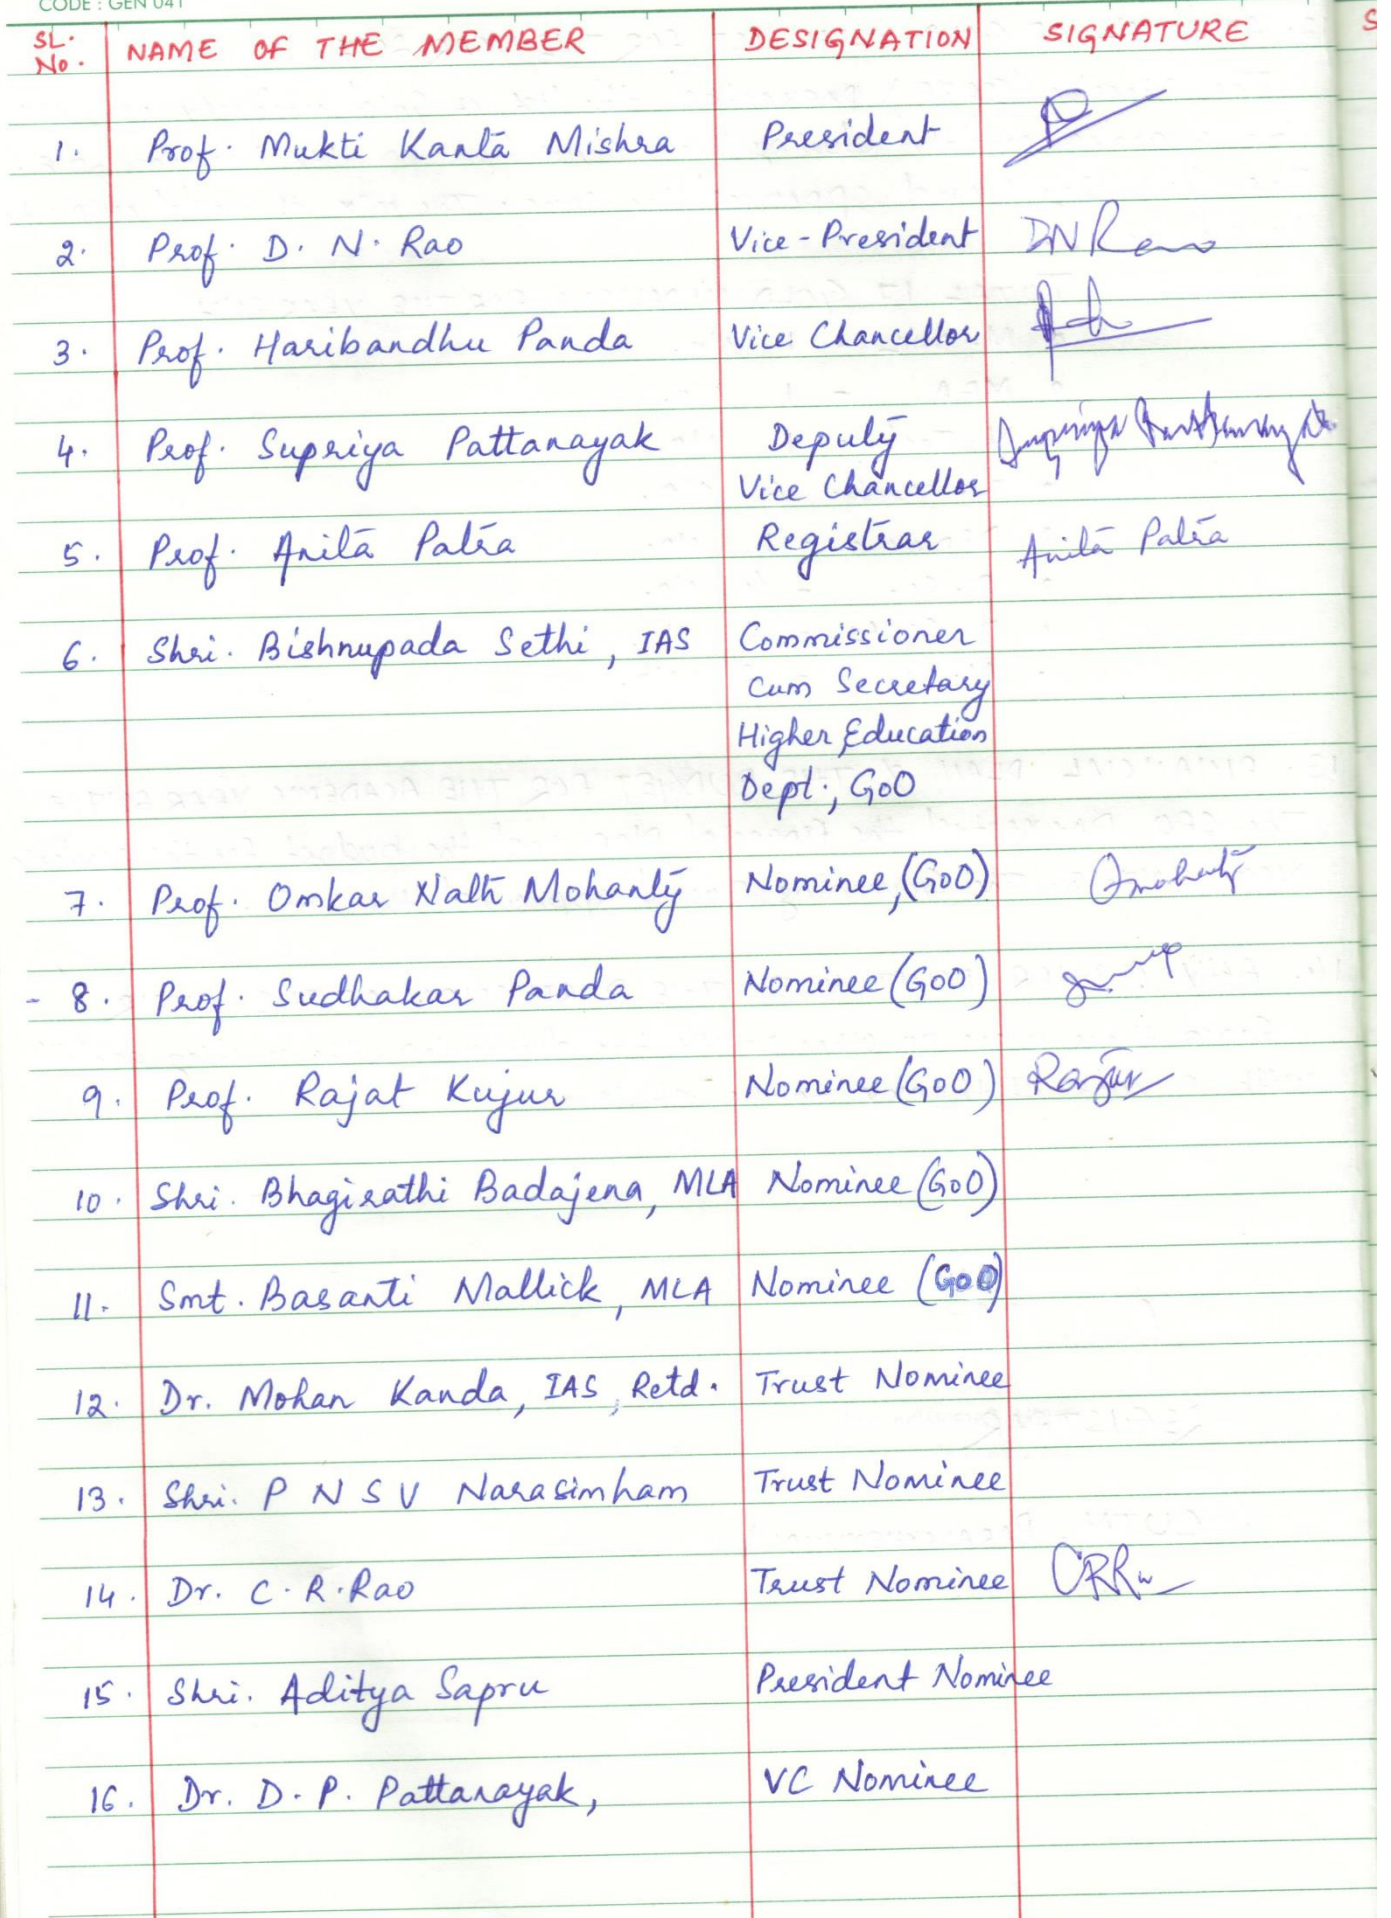 CODE : GEN 041
SL. No. NAME OF THE MEMBER DESIGNATION SIGNATURE
1. Prof. Mukti Kanta Mishra President
2. Prof. D. N. Rao Vice-President DN Rao
3. Prof. Haribandhu Panda Vice Chancellor
4. Prof. Supriya Pattanayak Deputy Supriya Pattanayak
Vice Chancellor
5. Prof. Anita Patra Registrar Anita Patra
6. Shri. Bishnupada Sethi, IAS Commissioner
Cum Secretary
Higher Education
Dept., GoO
7. Prof. Omkar Nath Mohanty Nominee, (GoO) Omohanty
8. Prof. Sudhakar Panda Nominee (GoO)
9. Prof. Rajat Kujur Nominee (GoO)
10. Shri. Bhagirathi Badajena, MLA Nominee (GoO)
11. Smt. Basanti Mallick, MLA Nominee (GoO)
12. Dr. Mohan Kanda, IAS, Retd. Trust Nominee
13. Shri. P N S V Narasimham Trust Nominee
14. Dr. C. R. Rao Trust Nominee CRRao
15. Shri. Aditya Sapru President Nominee
16. Dr. D. P. Pattanayak, VC Nominee